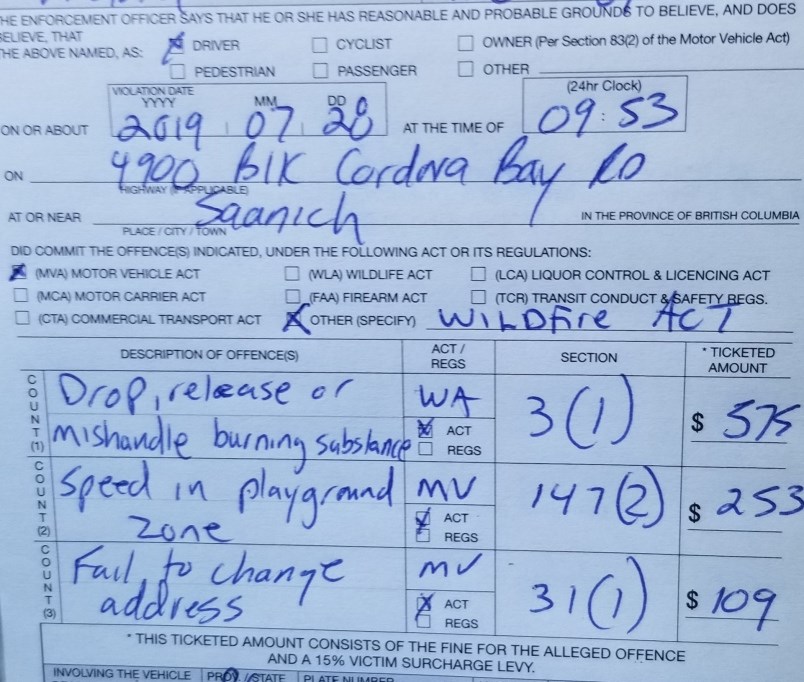 HE ENFORCEMENT OFFICER SAYS THAT HE OR SHE HAS REASONABLE AND PROBABLE GROUNDS TO BELIEVE, AND DOES
BELIEVE, THAT
THE ABOVE NAMED, AS:
DRIVER CYCLIST OWNER (Per Section 83(2) of the Motor Vehicle Act)
PEDESTRIAN PASSENGER OTHER
VIOLATION DATE
YYYY MM DD (24hr Clock)
ON OR ABOUT 2019 07 28 AT THE TIME OF 09:53
ON 4900 BlK Cordova Bay RD
HIGHWAY (IF APPLICABLE)
AT OR NEAR Saanich IN THE PROVINCE OF BRITISH COLUMBIA
PLACE / CITY / TOWN
DID COMMIT THE OFFENCE(S) INDICATED, UNDER THE FOLLOWING ACT OR ITS REGULATIONS:
(MVA) MOTOR VEHICLE ACT (WLA) WILDLIFE ACT (LCA) LIQUOR CONTROL & LICENCING ACT
(MCA) MOTOR CARRIER ACT (FAA) FIREARM ACT (TCR) TRANSIT CONDUCT & SAFETY REGS.
(CTA) COMMERCIAL TRANSPORT ACT OTHER (SPECIFY) WILDFire ACT
DESCRIPTION OF OFFENCE(S) ACT / REGS SECTION * TICKETED AMOUNT
COUNT (1) Drop, release or WA 3(1) $ 575
mishandle burning substance ACT REGS
COUNT (2) Speed in playground MV 147(2) $ 253
Zone ACT REGS
COUNT (3) Fail to change MV 31(1) $ 109
address ACT REGS
* THIS TICKETED AMOUNT CONSISTS OF THE FINE FOR THE ALLEGED OFFENCE
AND A 15% VICTIM SURCHARGE LEVY.
INVOLVING THE VEHICLE PROV / STATE PLATE NUMBER